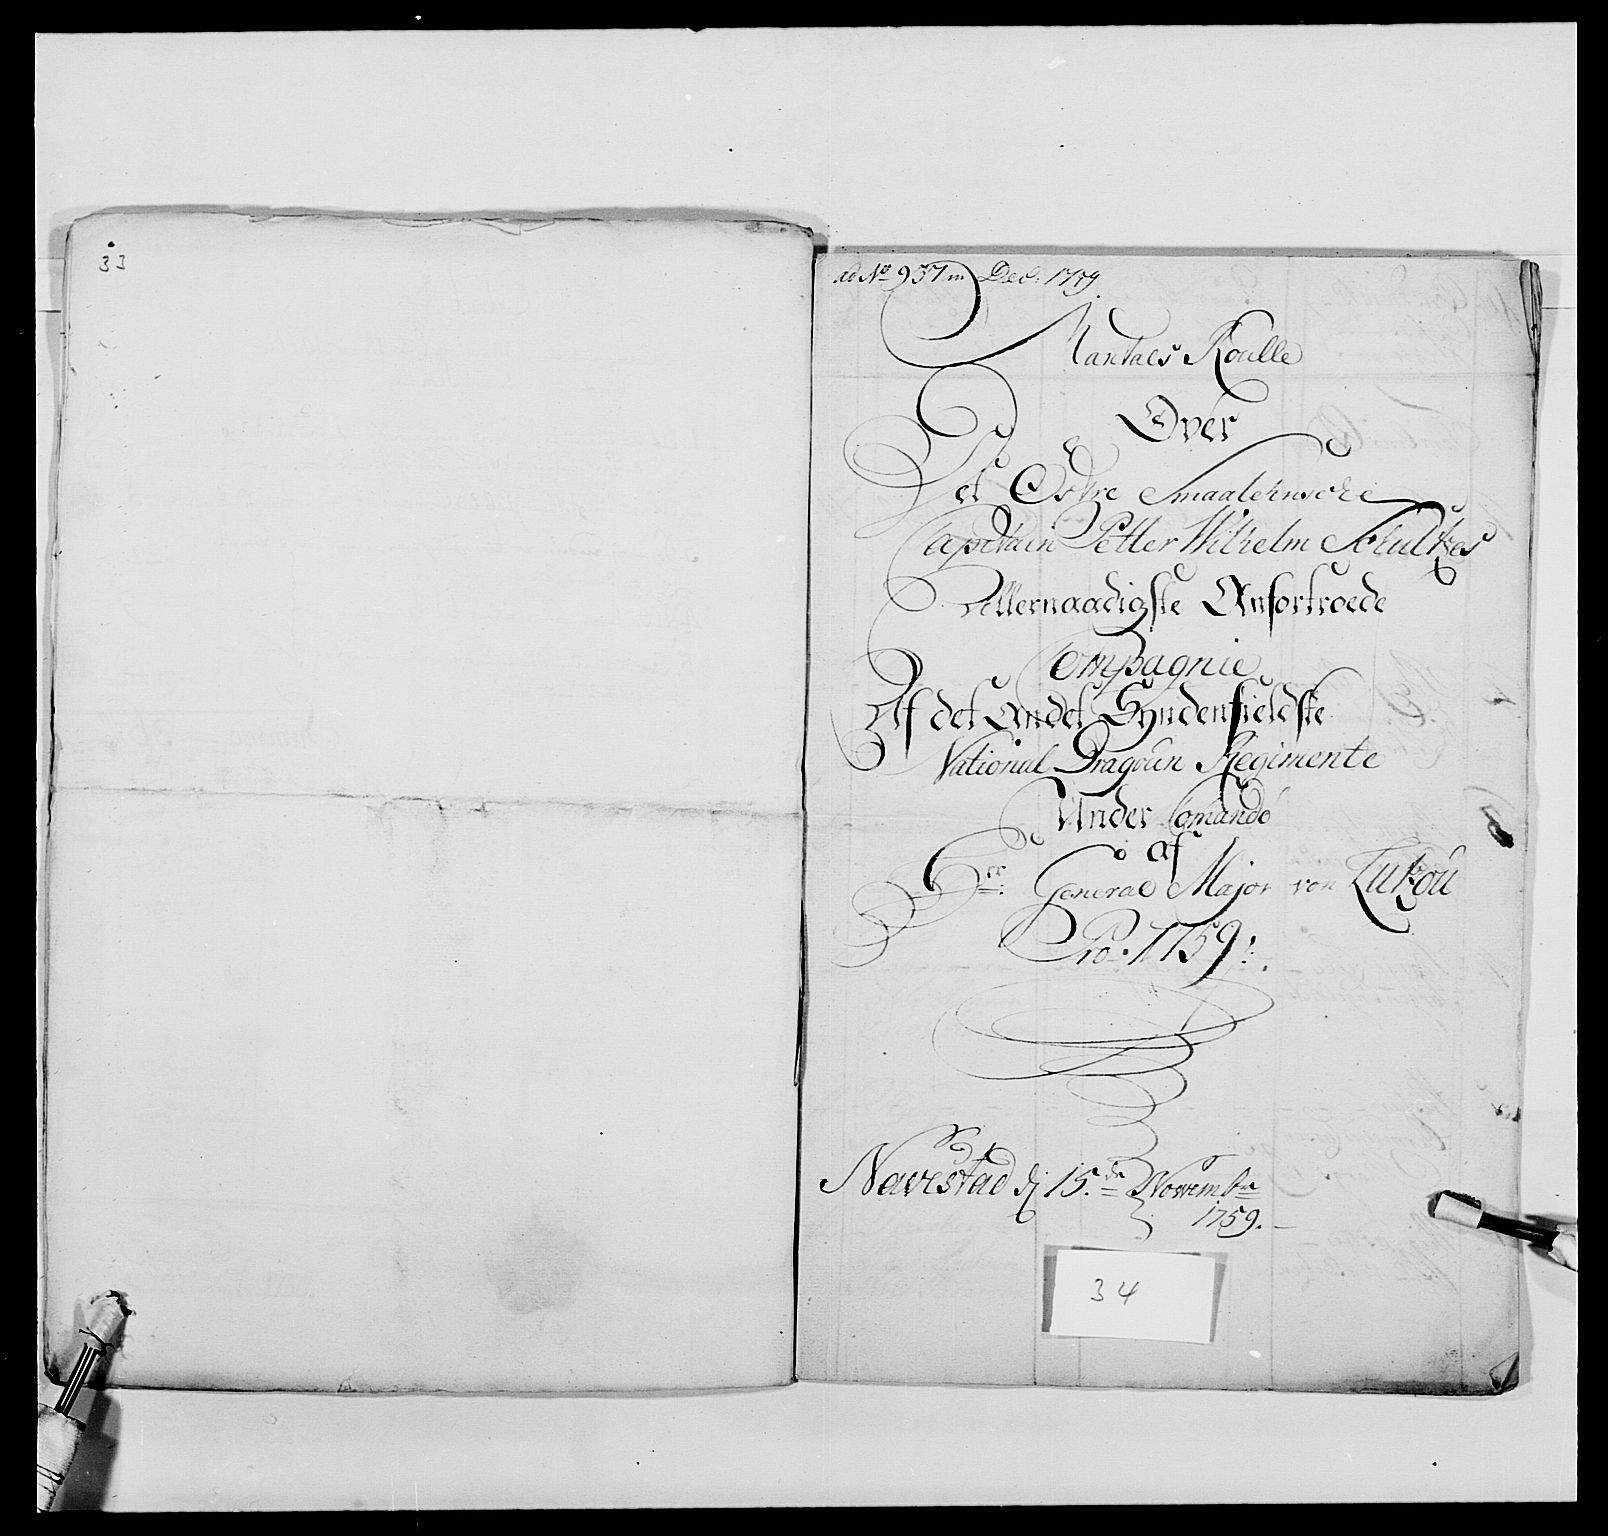 33
ad No 937 in Dec: 1759.
Mantaes Roulle
Over
Det Østre Smaalehnsche
Capitain Petter Wilhelm Schultzes
Allernaadigste Anfortroede
Compagnie
Af det Andet Syndenfieldske
National Dragoun Regimente
Under Comando
af
Hr: General Major von Lützou
Pro: 1759:
Navestad dj 15de Novembr
1759.
34